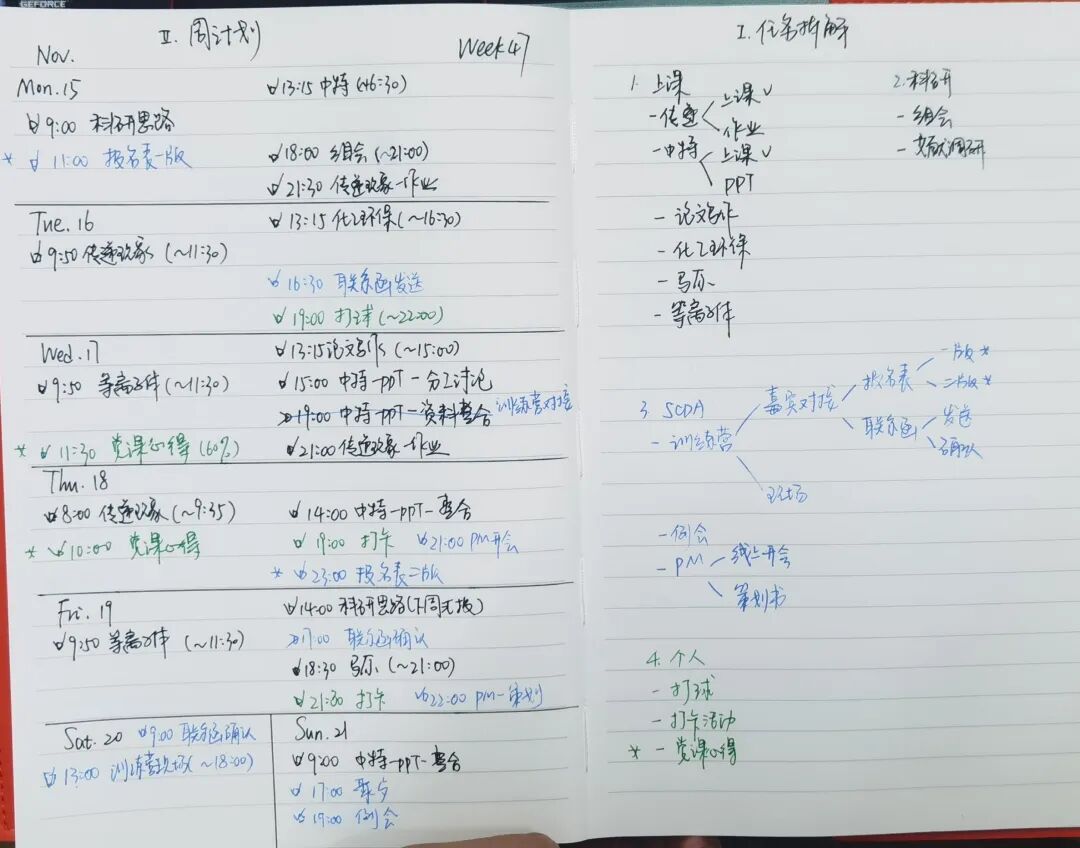 GEFORCE
II. 周计划
Nov.
Week 47
Mon. 15
13:15 中特 (~16:30)
9:00 科研思路
* 11:00 报名表一版
18:00 组会 (~21:00)
21:30 传递现象-作业
Tue. 16
13:15 化工环保 (~16:30)
9:50 传递现象 (~11:30)
16:30 联系函发送
19:00 打球 (~22:00)
Wed. 17
13:15 论文写作 (~15:00)
9:50 等离子体 (~11:30)
15:00 中特-ppt-分工讨论
19:00 中特-ppt-资料整合 训练营对接
* 11:30 党课心得 (60%)
21:00 传递现象-作业
Thu. 18
8:00 传递现象 (~9:35)
14:00 中特-ppt-整合
* 10:00 党课心得
19:00 打卡
21:00 PM开会
* 23:00 报名表二版
Fri. 19
14:00 科研思路 (下周汇报)
9:50 等离子体 (~11:30)
17:00 联系函确认
18:30 马原 (~21:00)
21:30 打卡
22:00 pm-策划
Sat. 20
9:00 联系函确认
13:00 训练营现场 (~18:00)
Sun. 21
9:00 中特-ppt-整合
17:00 聚餐
19:00 例会
I. 任务拆解
1. 上课
- 传递
上课 √
作业
- 中特
上课 √
PPT
- 论文写作
- 化工环保
- 马原
- 等离子体
2. 科研
- 组会
- 文献调研
3. SCDA
- 训练营
嘉宾对接
报名表
一版 *
二版 *
联系函
发送
确认
现场
- 例会
- PM
线上开会
策划书
4. 个人
- 打球
- 打卡活动
* - 党课心得